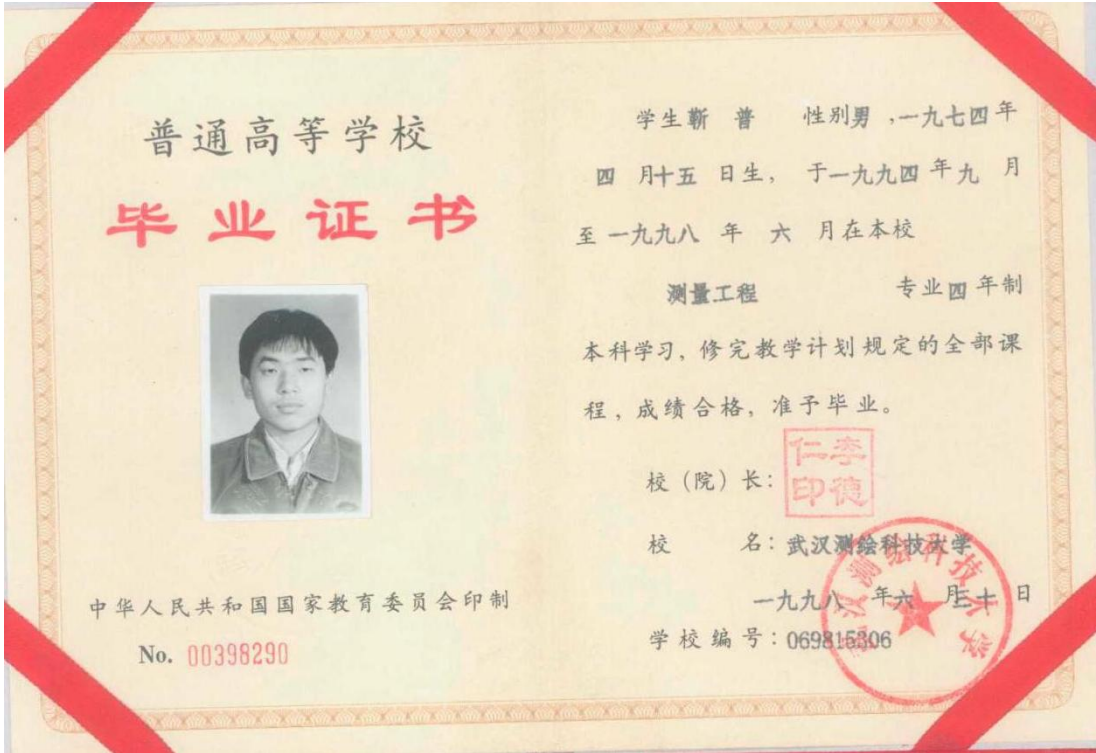 普通高等学校
毕业证书
中华人民共和国国家教育委员会印制
No. 00398290
学生靳 普 性别男,一九七四年
四 月十五 日生, 于一九九四年九 月
至一九九八 年 六 月在本校
测量工程 专业四年制
本科学习, 修完教学计划规定的全部课
程, 成绩合格, 准予毕业。
校(院)长:
李德仁印
校 名: 武汉测绘科技大学
一九九八 年六 月三十 日
学校编号: 069815306
武汉测绘科技大学